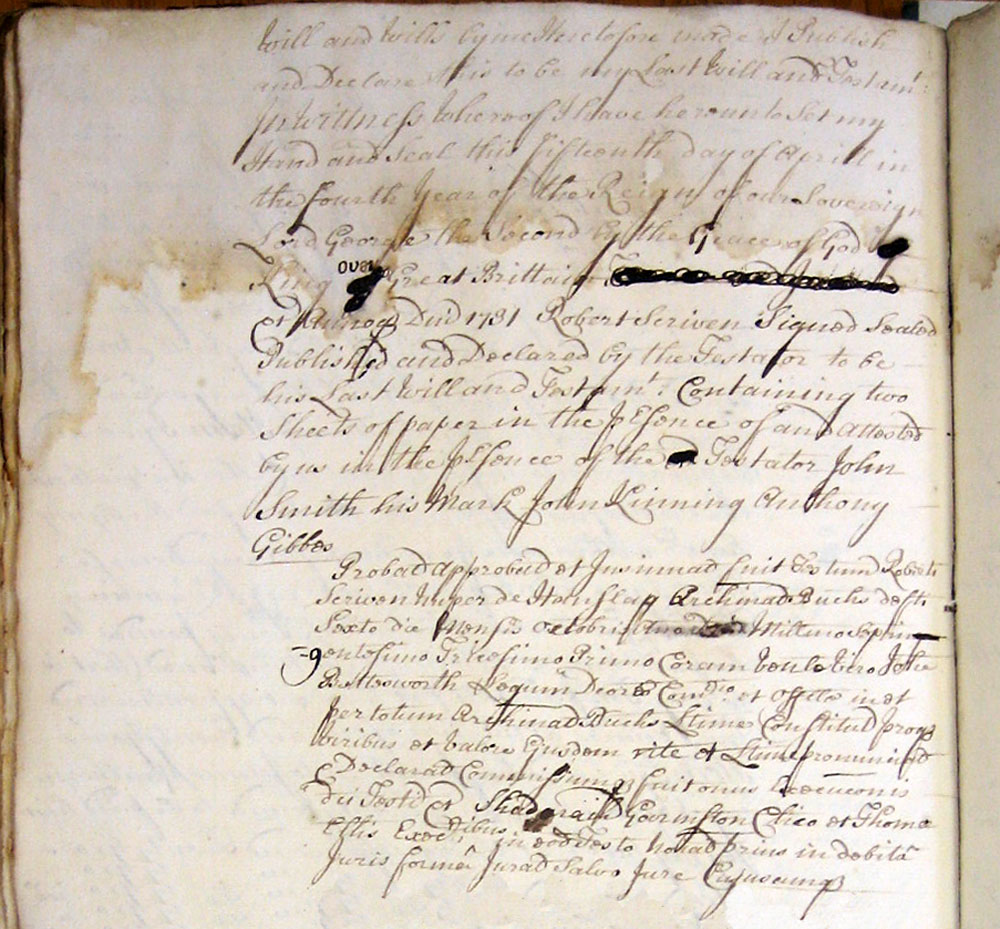 Will and Wills by me Heretofore made I Publish
and Declare this to be my Last Will and Testamt:
In Wittness Whereof I have hereunto Set my
Hand and Seal this Fifteenth day of Aprill in
the Fourth Year of the Reign of our Sovereign
Lord George the Second by the Grace of God
King over Great Brittain
et Annoq Dni 1731 Robert Scriven Signed Sealed
Published and Declared by the Testator to be
his Last Will and Testamt. Containing two
Sheets of paper in the pesence of and attested
by us in the pesence of the Testator John
Smith his Mark John Kinning Anthony
Gibbes
Probad Approbad et Insinuad fuit Testum Roberti
Scriven nuper de Archinad Bucks defti
Sexto die Mensis Octobris Millmo Septin
gentesimo Tricesimo Primo Coram Venle viro Johe
Bettesworth Legum Dcore et Offitle in et
per totum Archinad Bucks Ltime Constitud prog
viribus et valore Ejusdem rite et Ltime pronunciad
Declarad Commissumq fuit onus
dci Testi et Garmston Clico et Thoma
Ellis in eod Testo noiad prius in debitâ
Juris formâ Jurad Salvo Jure Cujuscunq